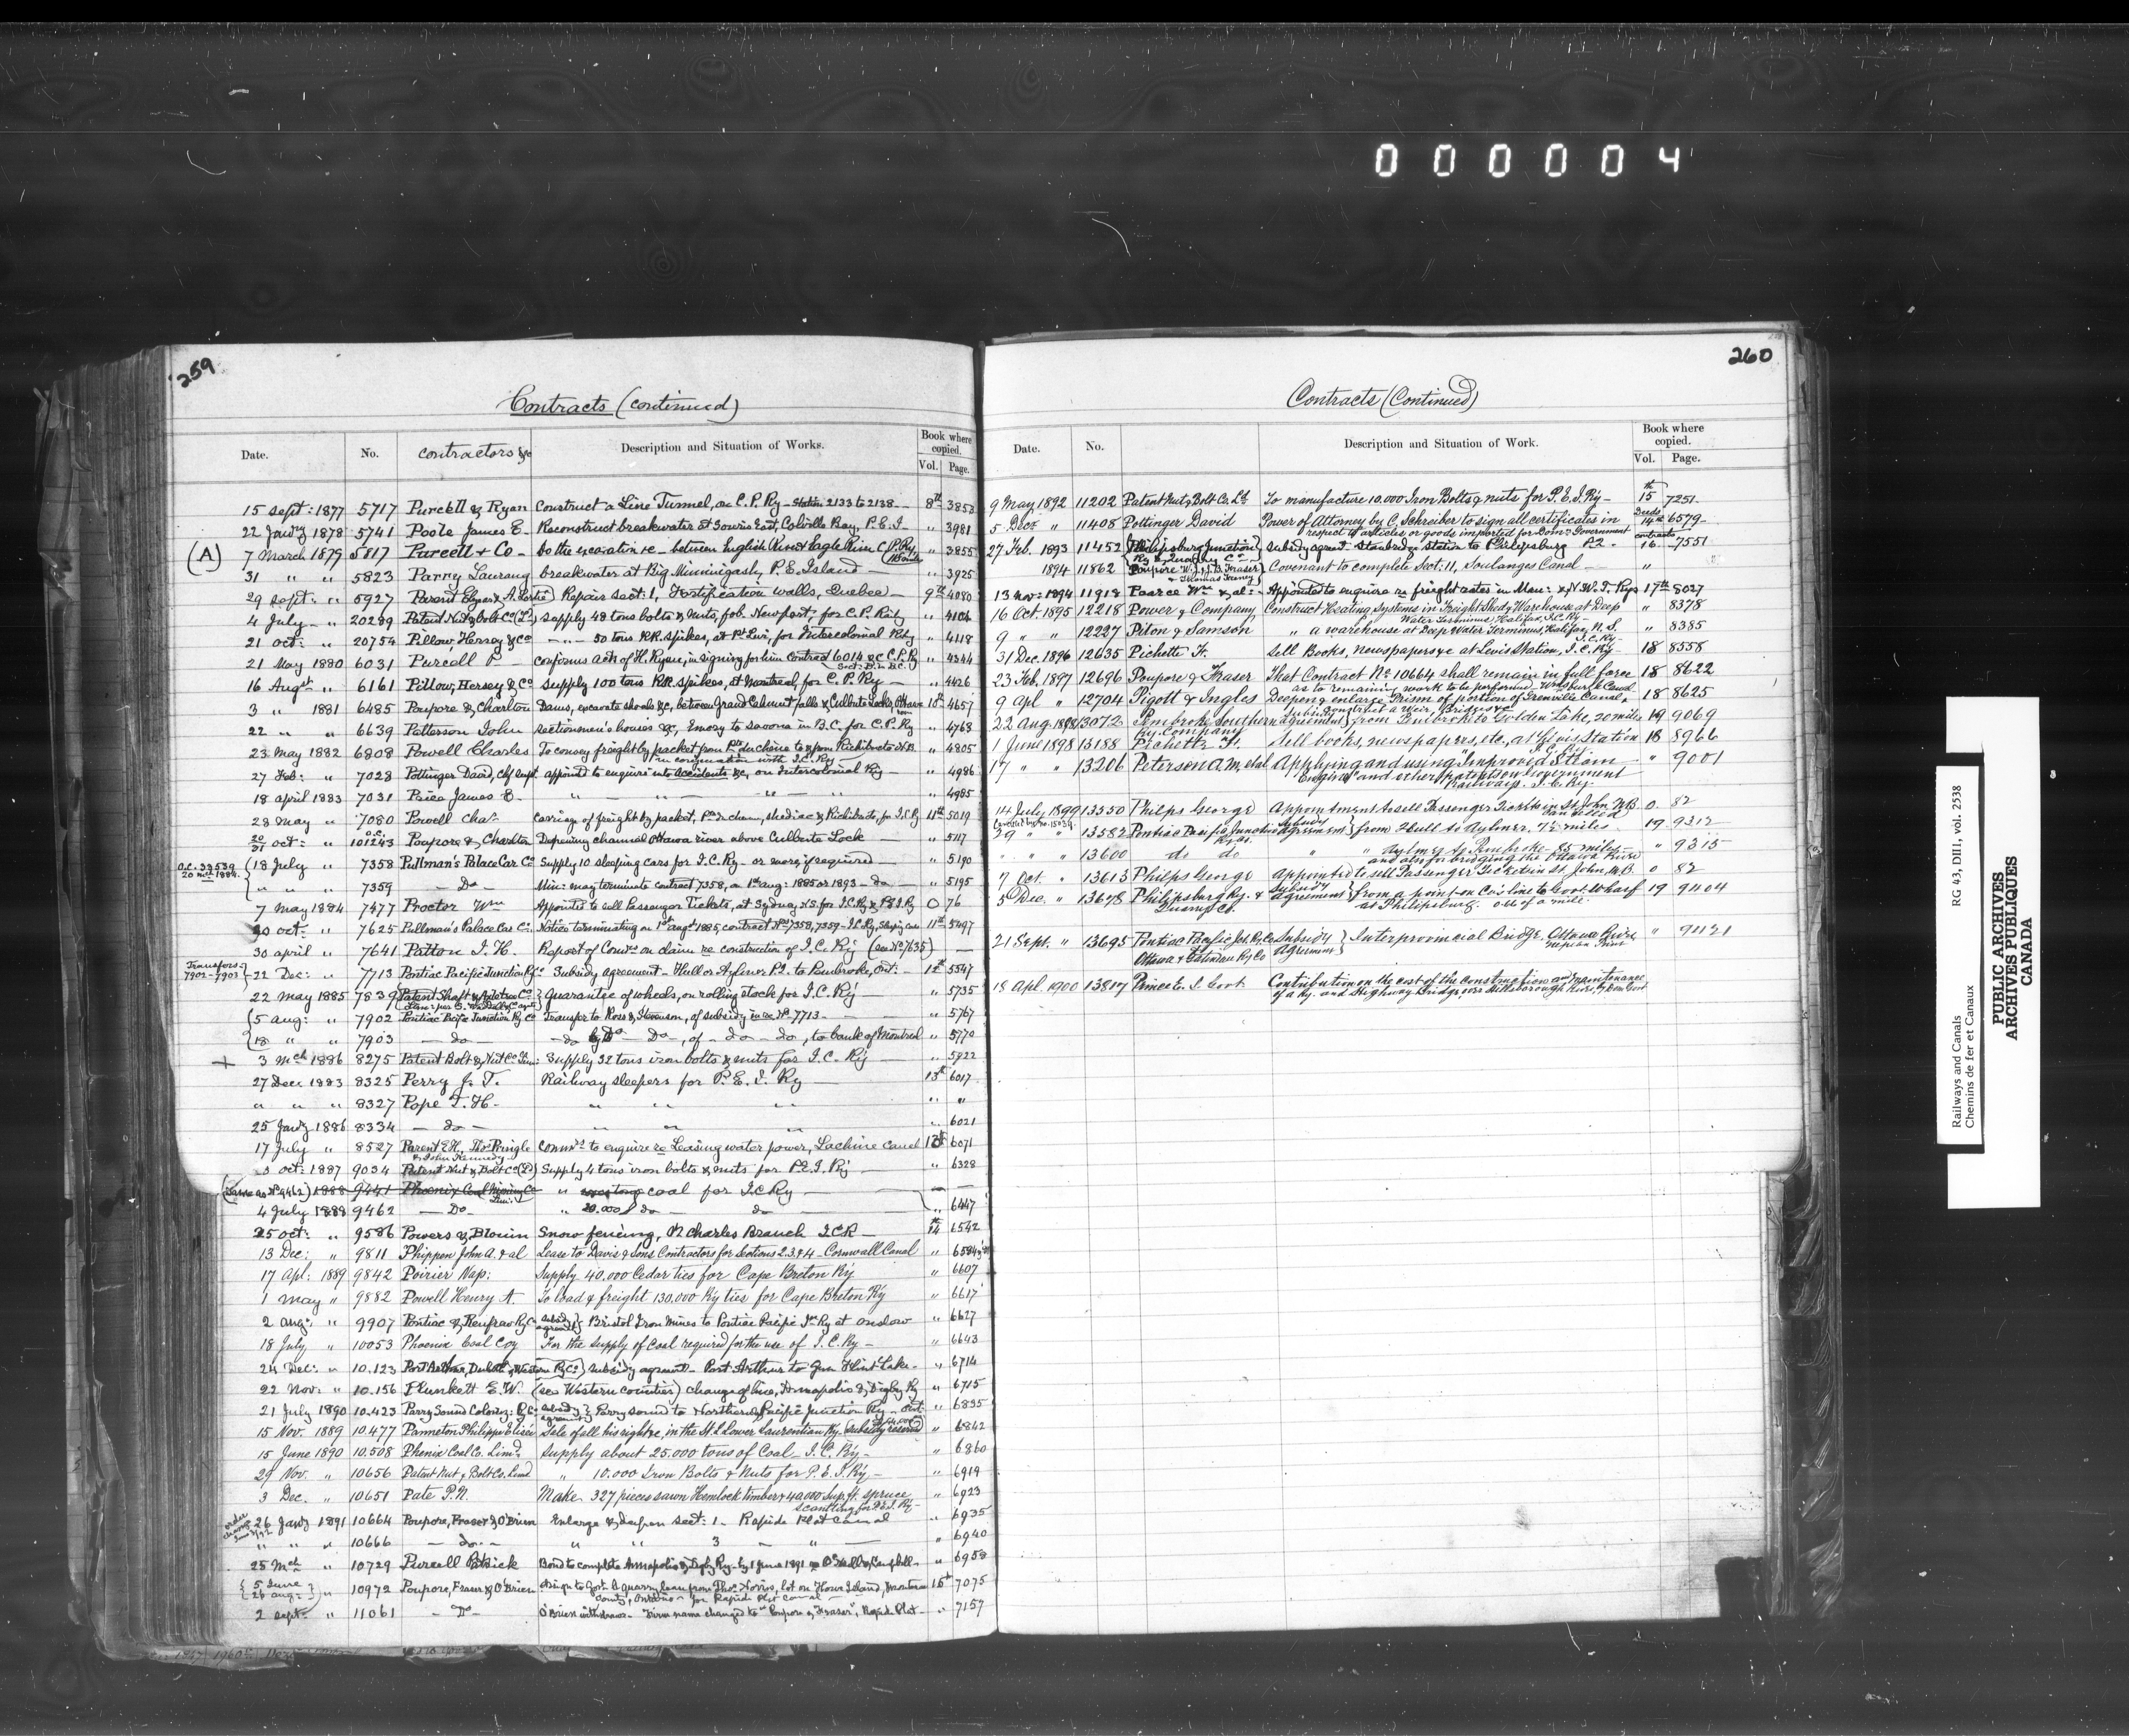 000004
259
Contracts (continued)
Date. No. contractors &c Description and Situation of Works. Book where copied. Vol. Page.
15 sept: 1877 5717 Purcell & Ryan Construct a Line Tunnel, on C.P. Ry - Station 2133 to 2138 - 8th 3853
22 Jan'ry 1878 5741 Poole James E. Reconstruct breakwater at Souris East, Colville Bay, P.E.I. " 3981
(A) 7 March 1879 5817 Purcell & Co - Do the excavation &c - between English River & Eagle River C.P. Ry " 3855
31 " " 5823 Parry Laurang breakwater at Big Minnigash, P.E. Island " 3925
29 sept: " 5927 Repairs sect: 1, Fortification walls, Quebec - 9th 4080
4 July " 20289 Patent Nut & bolt Co (Ld) supply 48 tons bolts & nuts, fob. Newport, for C.P. Rly " 4104
21 oct: " 20754 Pillow, Hersey & Co - " - 50 tons RR. spikes, at Pt Levi, for Intercolonial Rly " 4118
21 May 1880 6031 Purcell P - confirms acts of H. Ryan, in signing for him contract 6014 &c C.P. Ry " 4344
16 Augst " 6161 Pillow, Hersey & Co supply 100 tons RR. spikes, at Montreal, for C.P. Ry - " 4426
3 " 1881 6485 Poupore & Charlton Dams, excavate shoals &c, between Grand Calumet falls & Culbute Locks, Ottawa 10th 4657
22 " " 6639 Patterson John sectionmen's houses &c, Emory to savona in B.C. for C.P. Ry " 4763
23 May 1882 6808 Powell Charles To convey freight by packet from Pte duchene to & from Richibucto N.B. " 4805
in conjunction with I.C. Ry
27 Feb: " 7028 Pottinger David, chf supt appointd to enquire into accidents &c, on Intercolonial Rly " 4986
18 april 1883 7031 Price James E. " " " " 4985
28 May " 7080 Powell Chas. Carriage of freight by packet, Pte du chene, shediac & Richibucto, for I.C. Ry 11th 5019
20/31 oct: " 101243 Poupore & Charlton Deepening channel Ottawa river above Culbute Lock " 5117
O.C. 33539 20 1884. 18 July " 7358 Pullman's Palace Car Co Supply 10 sleeping cars for I.C. Ry - or more if required " 5190
" " " 7359 - Do - Min: may terminate contract 7358, on 1st aug: 1885 or 1893 - do - " 5195
7 May 1884 7477 Proctor Wm Appointed to sell Passenger Tickets, at Sydney N.S. for I.C. Ry & P.E.I. Ry O 76
30 oct: " 7625 Pullman's Palace Car Co. Notice terminating on 1st augst 1885, contract Nos 7358, 7359 - I.C. Ry, Sleeping Cars 11th 5497
30 april " 7641 Patton I. H. Report of Comrs on claim re construction of I.C. Ry (see No 7635)
Transfers - 7902 - 7903 22 Dec: " 7713 Pontiac Pacific Junction Ry Co Subsidy agreement - Hull or Aylmer P.Q. to Pembroke, Ont: - 12th 5547
22 May 1885 7839 Patent Shaft & Axletree Co Guarantee of wheels, on rolling stock for I.C. Ry " 5735
5 aug: " 7902 Pontiac Pacific Junction Ry Co Transfer to Ross & Stevenson, of subsidy in re No 7713 - " 5767
18 " " 7903 - do - - do - Do -, of - do - do, to bank of Montreal " 5770
+ 3 Mch 1886 8275 Patent Bolt & Nut Co Lim: Supply 32 tons iron bolts & nuts for I.C. Ry " 5922
27 Dec 1883 8325 Perry J. T. Railway sleepers for P.E.I. Ry 13th 6017
" " " 8327 Pope T. H. - " " " " "
25 Jany 1886 8334 - do - " " " " 6021
17 July " 8527 Parent E.H., Thos Pringle & John Kennedy commrs to enquire re Leasing water power, Lachine canal 13th 6071
oct: 1887 9034 Patent Nut & Bolt Co (Ld) Supply 4 tons iron bolts & nuts for P.E.I. Ry " 6328
(Same as No 9462) 1888 9441 Phoenix Coal Mining Co Lim: " coal for I.C. Ry
4 July 1888 9462 - Do - " 20.000 do do " 6447
25 oct: " 9586 Powers & Blouin Snow fencing, St Charles Branch I.C.R. 14th 6542
13 Dec: " 9811 Phippen John A. & al Lease to Davis & Sons Contractors for Sections 2.3 & 4 - Cornwall Canal " 6584½
17 Apl: 1889 9842 Poirier Nap: Supply 40.000 Cedar ties for Cape Breton Ry " 6607
1 May " 9882 Powell Henry A. To load & freight 130.000 Ry ties for Cape Breton Ry " 6617
2 aug: " 9907 Pontiac & Renfrew Ry Co subsidy agreemt Bristol Iron Mines to Pontiac Pacific Jn Ry at onslow " 6627
18 July " 10053 Phoenix Coal Coy For the supply of Coal required for the use of I.C. Ry - " 6643
24 Dec: " 10.123 Port Arthur, Duluth & Western Ry Co subsidy agreemt - Port Arthur to Gun Flint Lake - " 6714
22 Nov: " 10.156 Plunkett E.W. (see Western counties) change of line, Annapolis & Digby Ry " 6715
21 July 1890 10.423 Parry Sound Coloniz: Ry Co subsidy agreemt Parry sound to Northern & Pacific Junction Ry - Ont: " 6835
15 Nov. 1889 10.477 Panneton Philippe Elisée Sale of all his right &c, in the St. L Lower Laurentian Ry. subsidy reserved " 6842
15 June 1890 10.508 Phenix Coal Co. Limd. Supply about 25.000 tons of Coal - I.C. Ry - " 6860
29 Nov. " 10656 Patent Nut & Bolt Co. Limd " 10.000 Iron Bolts & Nuts for P.E.I. Ry - " 6919
3 Dec. " 10651 Pate P.N. Make 327 pieces sawn Hemlock timber & 40.000 sup. ft. spruce " 6923
scantling for P.E.I. Ry -
26 Jany 1891 10664 Poupore, Fraser & O'Brien Enlarge & deepen sect: 1 - Rapide Plat canal " 6935
" " " 10666 - do - " " 3 " " 6940
25 Mch " 10729 Purcell Patrick Bond to complete Annapolis & Digby Ry - by 1 June 1891 " 6953
5 June 26 aug: " 10972 Poupore, Fraser & O'Brien Assign to Govt a quarry lease from Thos Norris, lot on Howe Island, 15th 7075
County, Ontario - for Rapide Plat canal -
2 sept: " 11061 - Do - O'Brien withdraws - Firm name changed to "Poupore & Fraser", Rapide Plat - " 7157
260
Contracts (Continued)
Date. No. Description and Situation of Work. Book where copied. Vol. Page.
9 May 1892 11202 Patent Nut & Bolt Co. Ld To manufacture 10.000 Iron Bolts & nuts for P.E.I. Ry - 15th 7251
5 Dec " 11408 Pottinger David Power of Attorney by C. Schreiber to sign all certificates in Deeds 14th 6579
respect of articles or goods imported for Dom: Government
27 Feb. 1893 11452 Philipsburg Junction Ry & Quarry Co - subsidy agreemt - Stanbridge Station to Philipsburg P.Q. - contracts 16 7551
1894 11862 Poupore W., J.B. Fraser & Thomas Feeney Covenant to complete Sect: 11, Soulanges Canal - "
13 Nov: 1894 11918 Pearce Wm & al: - Appointed to enquire re freight rates in Man: & N.W.T. Rys 17th 8027
16 Oct. 1895 12218 Power & Company Construct Heating Systems in Freight Shed & Warehouse at Deep " 8378
Water Terminus, Halifax, I.C. Ry -
9 " " 12227 Piton & Samson " a warehouse at Deep Water Terminus, Halifax, N.S. " 8385
I.C. Ry -
31 Dec. 1896 12635 Pichette F. Sell Books, Newspapers &c at Levis Station, I.C. Ry - 18 8558
23 Feb. 1897 12696 Poupore & Fraser That Contract No 10664 shall remain in full force 18 8622
as to remaining work to be performed - Wmsburg Canal
9 Apl " 12704 Pigott & Ingles Deepen & enlarge Prism of portion of Grenville Canal, 18 8625
construct a weir, Bridges &c
22 Aug. 1898 13072 Pembroke Southern Ry. Company Subsidy agreement from Pembroke to Golden Lake, 20 miles 19 9069
1 June 1898 13188 Pichette F. Sell books, newspapers, etc., at Levis Station 18 8966
I.C. Ry
17 " " 13206 Peterson A. M. et al Applying and using "Improved Steam " 9001
Engine" and other patents on Government
Railways. I.C. Ry.
14 July 1899 13550 Philps George Appointment to sell Passenger Tickets in St John, N.B. O 82
29 " " 13582 Pontiac Pacific Junction Ry. Co. Subsidy Agreement from Hull to Aylmer, 7½ miles 19 9312
" " " 13600 do do " " Aylmer to Pembroke - 85 miles - " 9315
and also for bridging the Ottawa River
7 Oct. " 13613 Philps George Appointed to sell Passenger Tickets in St. John, N.B. O 82
5 Dec. " 13678 Philipsburg Ry. & Quarry Co. Subsidy agreement from a point on Co's line to Govt Wharf 19 9404
at Philipsburg. 0.61 of a mile.
21 Sept. " 13695 Pontiac Pacific Jct. Ry. Co. Ottawa & Gatineau Ry Co Subsidy Agreement Interprovincial Bridge, Ottawa River, " 9421
Nepean Point
18 Apl. 1900 13817 Prince E. I. Govt Contribution on the cost of the construction and maintenance
of a Ry. and Highway Bridge over Hillsborough River, by Dom Govt
Railways and Canals
Chemins de fer et Canaux
RG 43, DIII, vol. 2538
PUBLIC ARCHIVES
ARCHIVES PUBLIQUES
CANADA